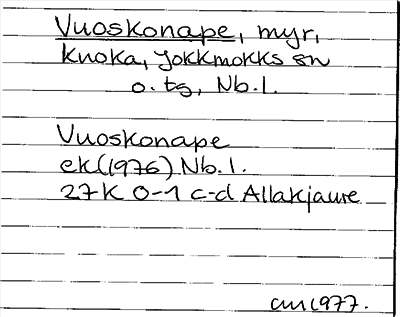 Vuoskonape, myr,
Knoka, Jokkmokks sn
o. tg, Nb.l.
Vuoskonape
ek(1976) Nb.l.
27K 0-1 c-d Allakjaure
1977.